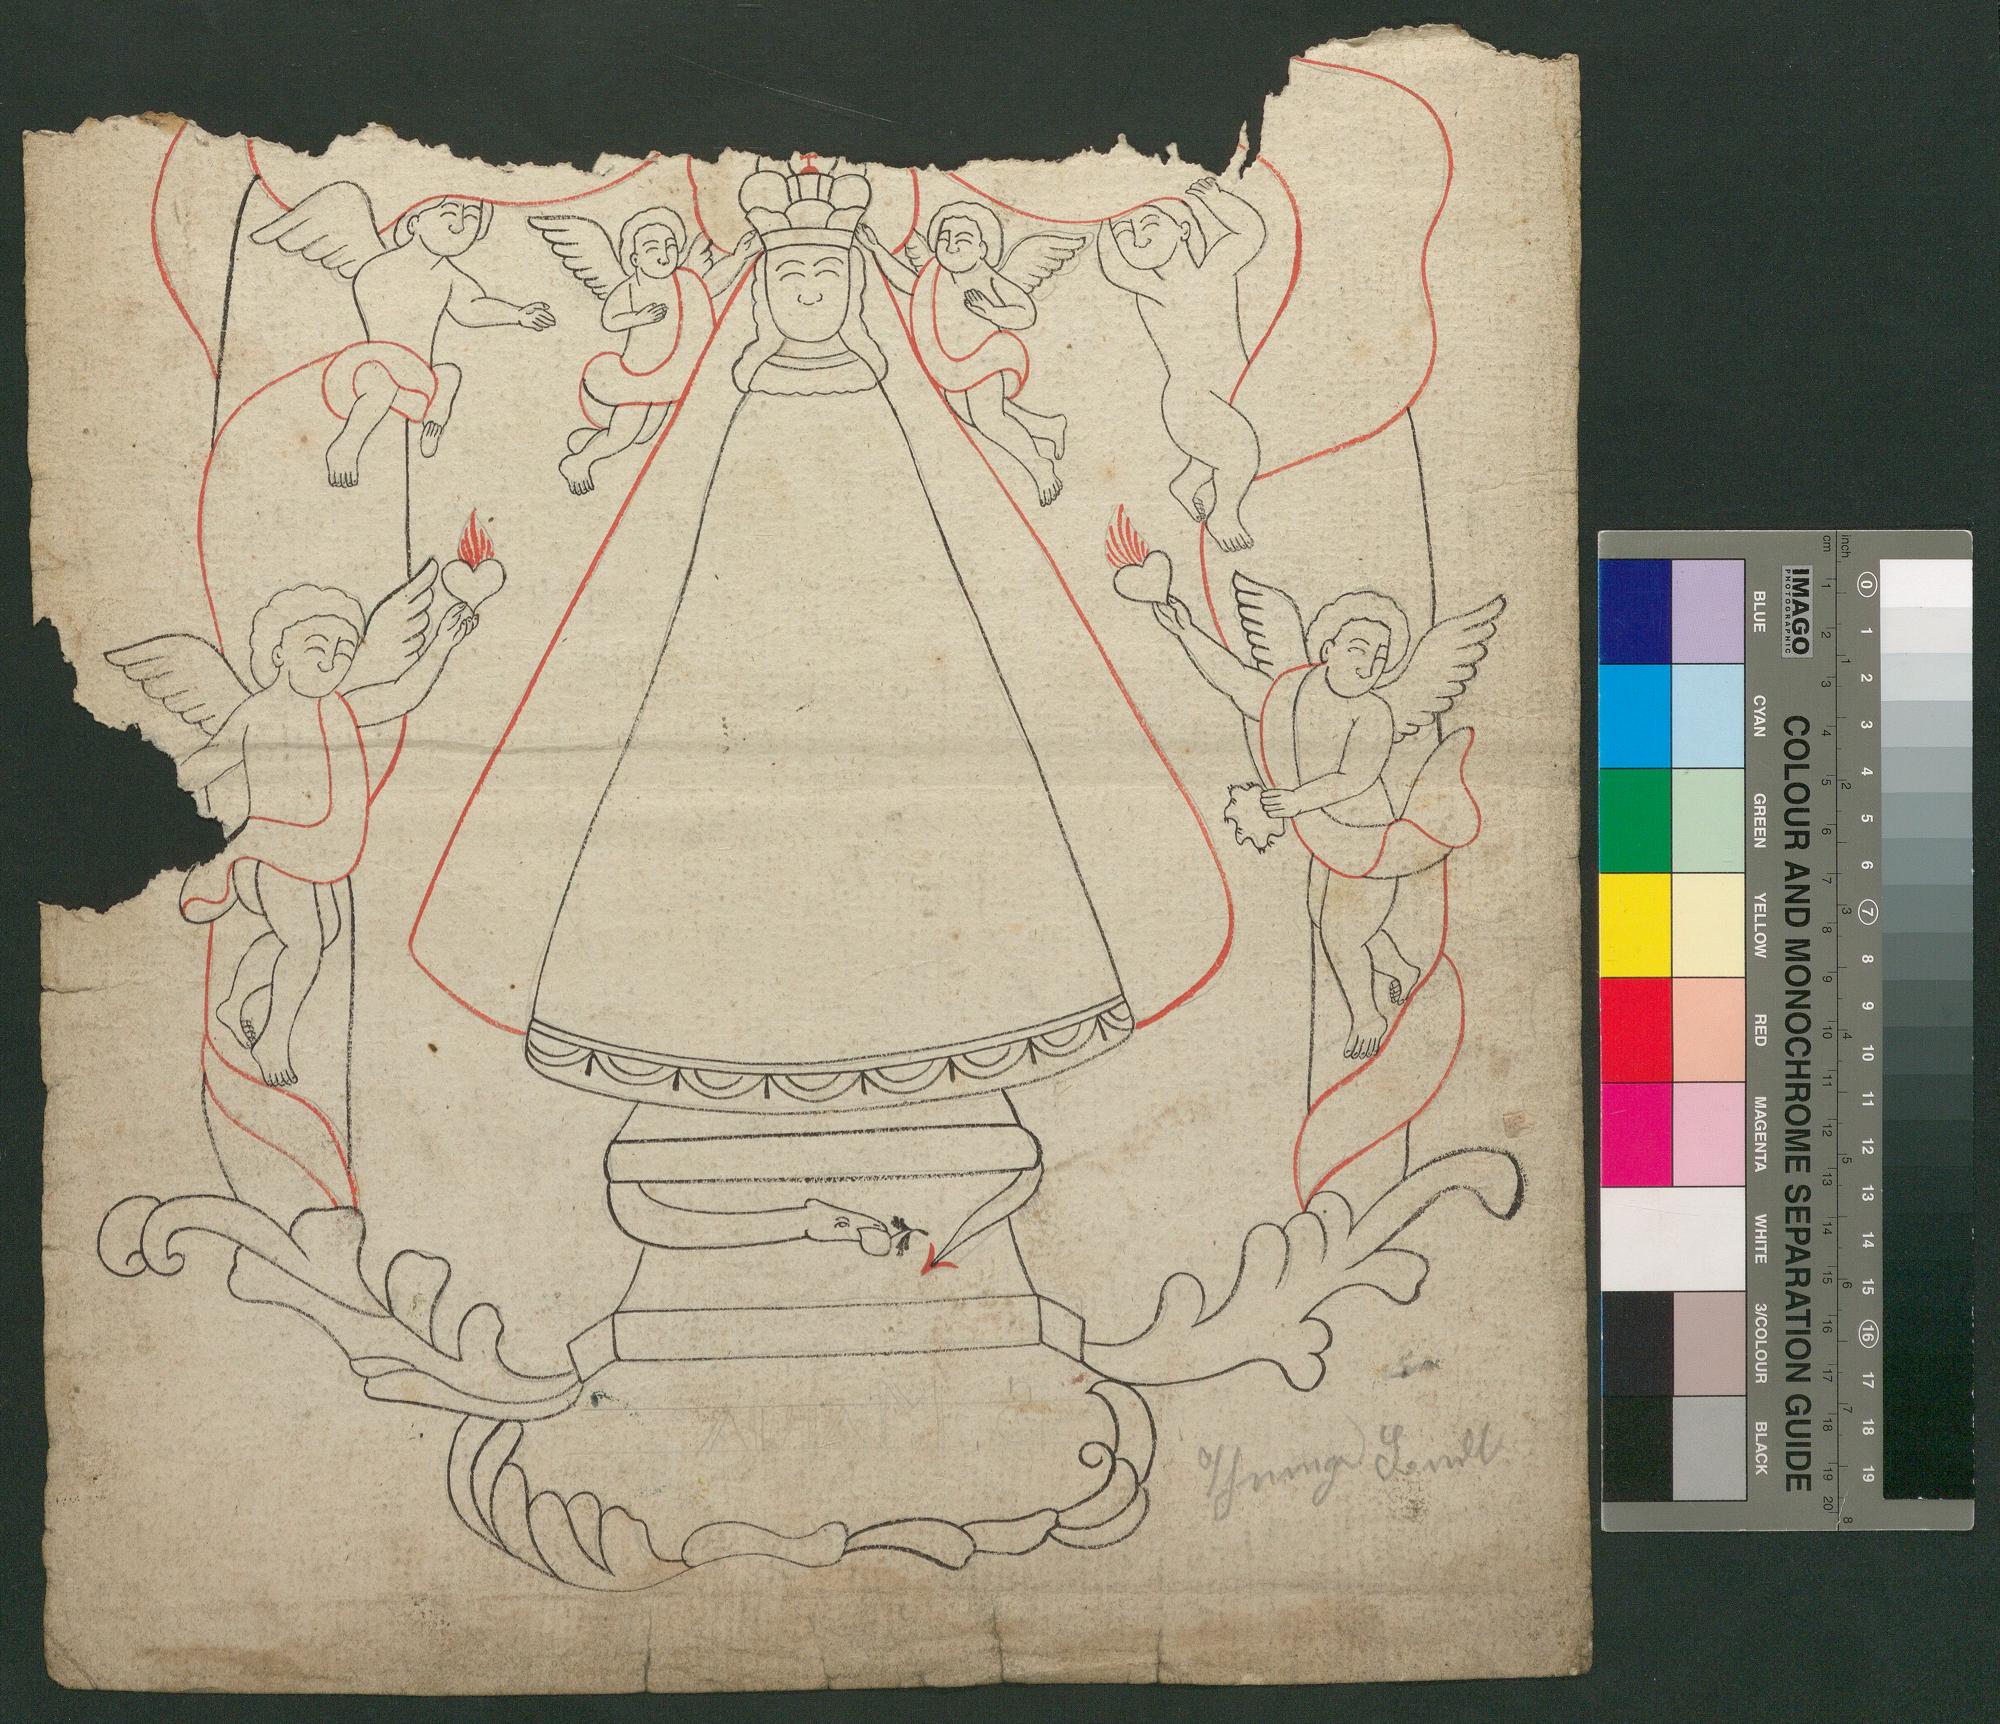 IMAGO
PHOTOGRAPHIC
COLOUR AND MONOCHROME SEPARATION GUIDE
cm
inch
BLUE
CYAN
GREEN
YELLOW
RED
MAGENTA
WHITE
3/COLOUR
BLACK
1 2 3 4 5 6 7 8 9 10 11 12 13 14 15 16 17 18 19 20
1 2 3 4 5 6 7 8
0 1 2 3 4 5 6 7 8 9 10 11 12 13 14 15 16 17 18 19